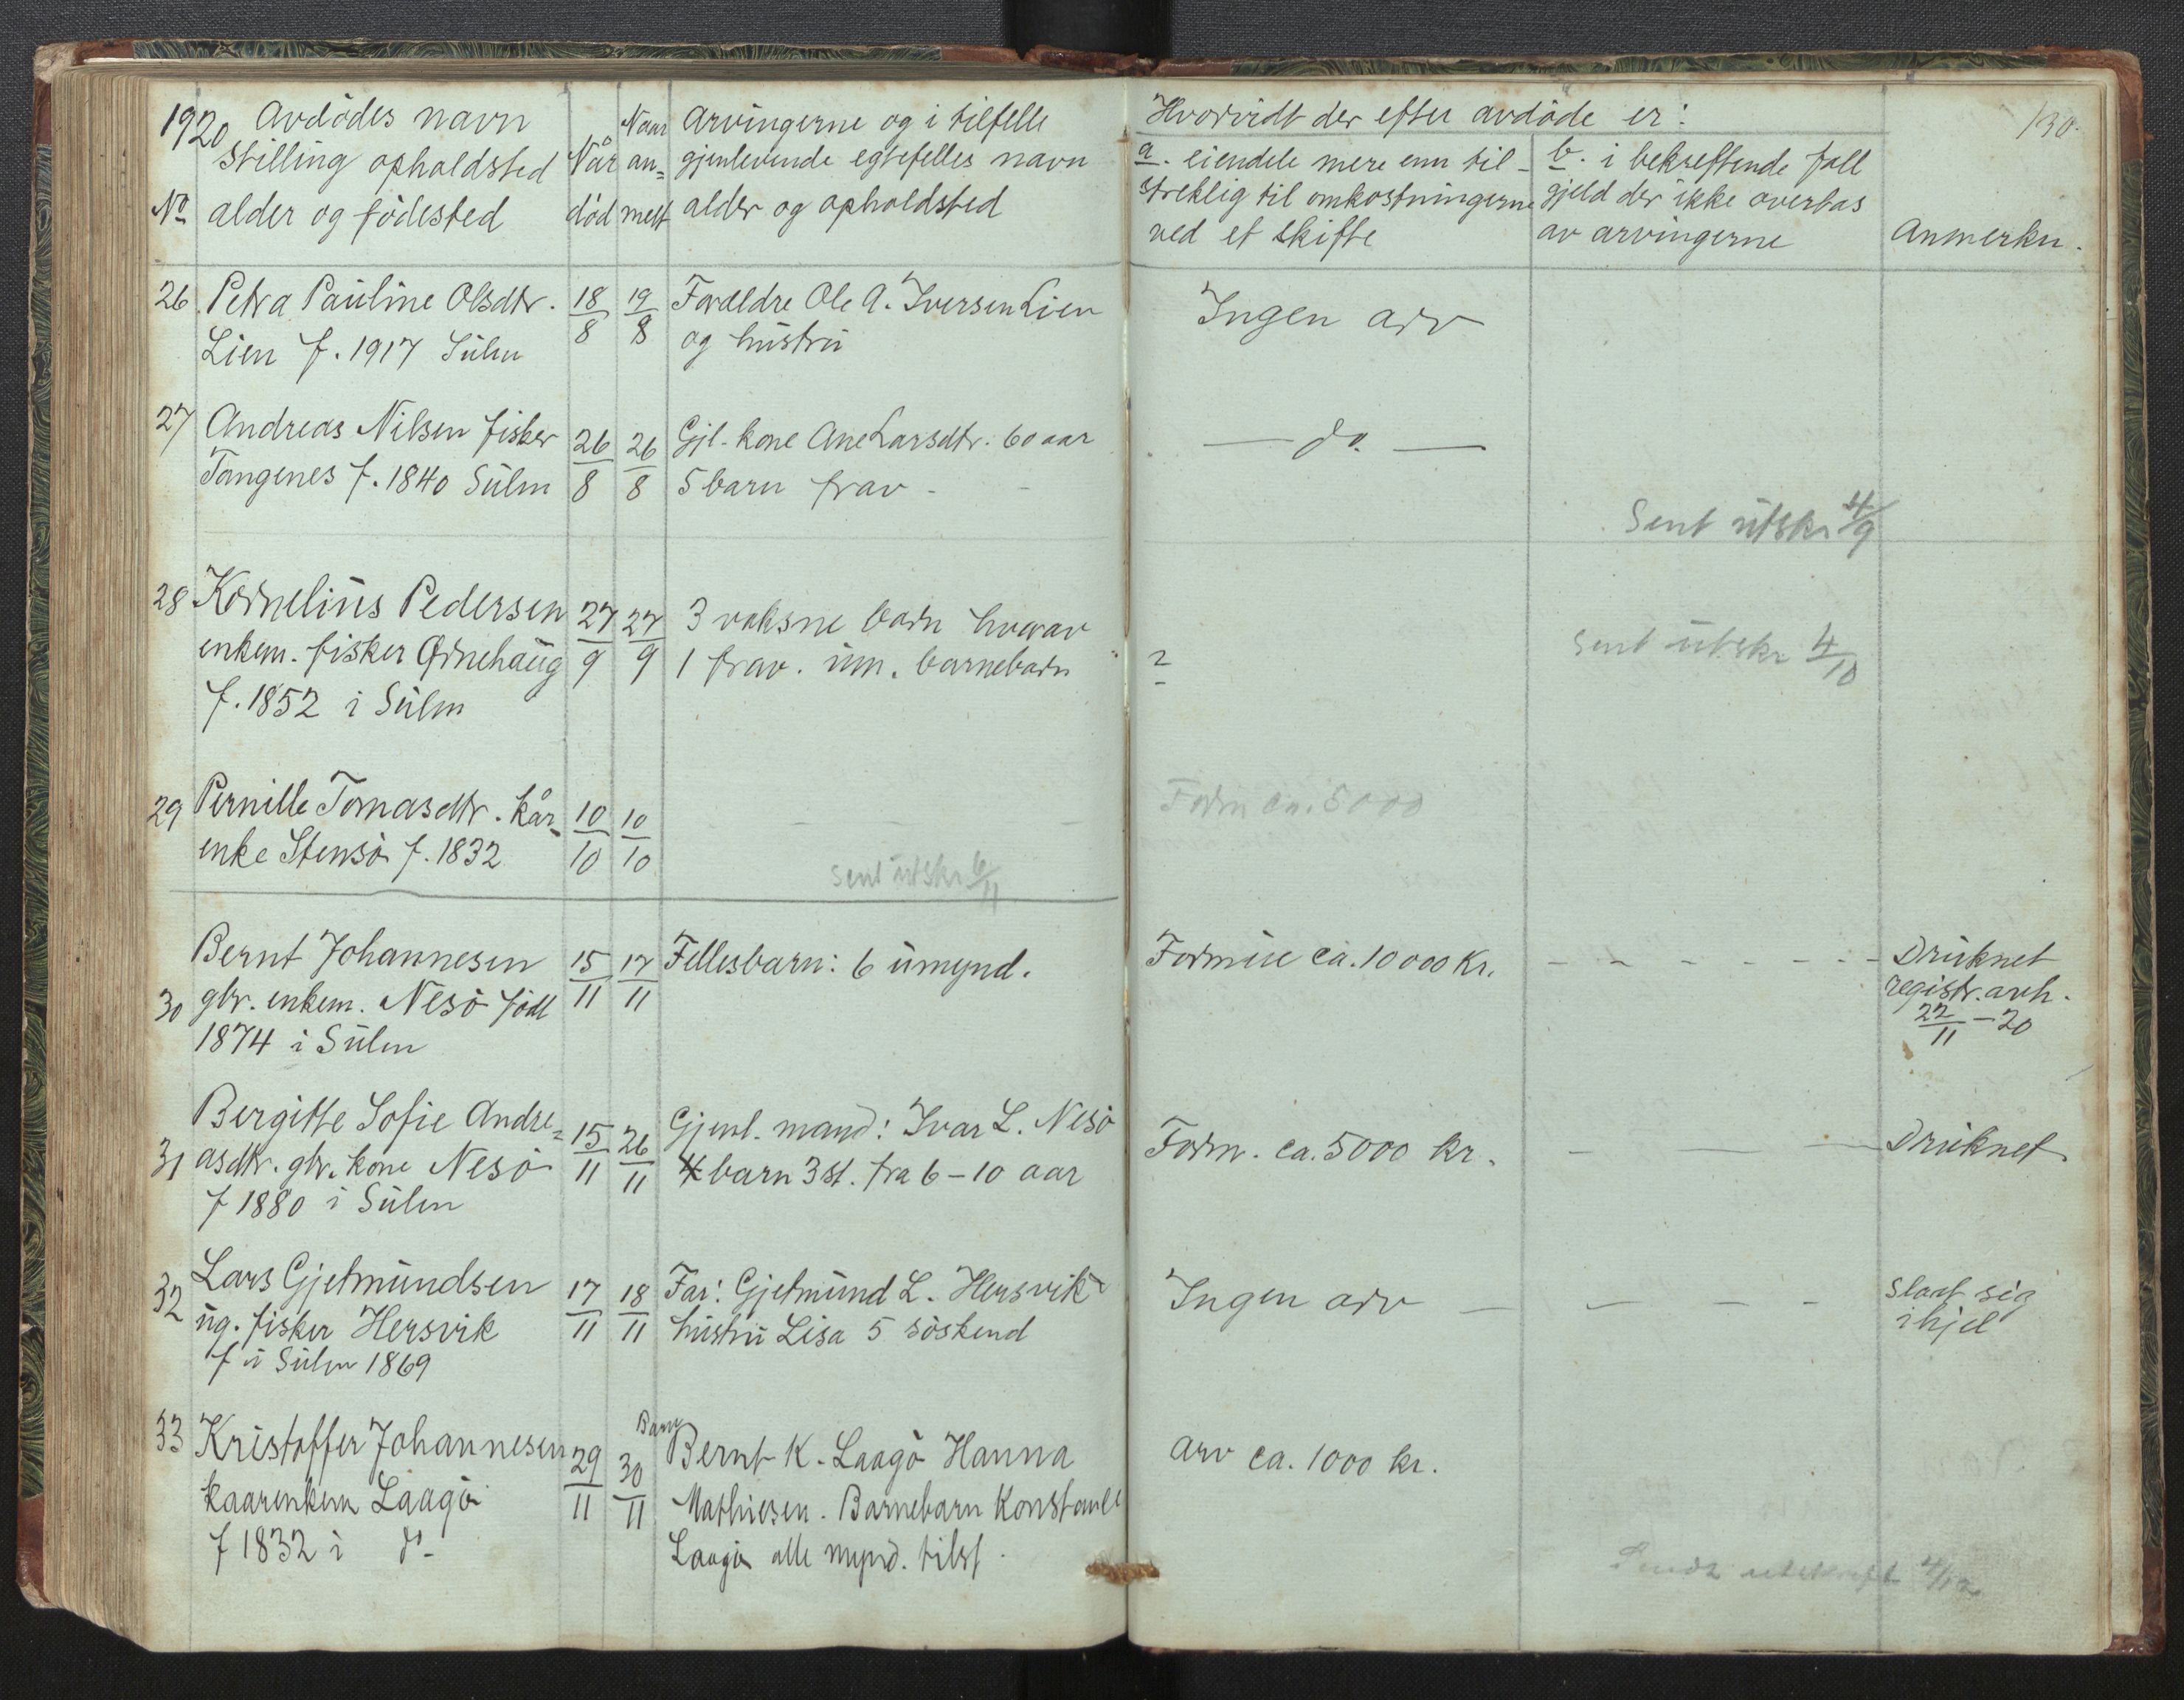 1920 Avdødes navn
stilling opholdsted
No alder og födested
Når
död
Naar
an=
melt
Arvingerne og i tilfelle
gjenlevende egtefelles navn
alder og opholdsted
Hvorvidt der efter avdöde er:
a. eiendele mere enn til-
streklig til omkostningerne
ved et skifte
b. i bekreftende fall
gjeld der ikke overtas
av arvingerne
Anmerkn.
130.
26 Petra Pauline Olsdtr. 18/8 19/8 Foreldre Ole A. Iversen Lien Ingen arv
Lien f. 1917 Sulen og hustru
27 Andreas Nilsen fisker 26/8 26/8 Gjl. kone Ane Larsdtr. 60 aar — do. —
Tangenes f. 1840 Sulen 5 barn frav -
Sent utskr 4/9
28 Kornelius Pedersen 27/9 27/9 3 voksne barn hvorav Sent utskr 4/10
enkem. fisker Ørnehaug 1 frav. um. barnebarn ?
f. 1852 i Sulen
29 Pernille Tomasdtr. kår- 10/10 10/10 - - - - Form ca. 5000
enke Stensö f. 1832
Sent utskr 6/11
Bernt Johannesen 15/11 17/11 Fellesbarn: 6 umynd. Formue ca. 10000 Kr. - - - - - - Druknet
30 gbr. enkem. Nesö född registr. avh.
1874 i Sulen 22/11 - 20
Bergitte Sofie Andre= 15/11 26/11 Gjenl. mand: Ivar L. Nesö Form. ca. 5000 kr. - — — Druknet
31 asdtr. gbr. kone Nesö 4 barn 3 st. fra 6-10 aar
f 1880 i Sulen
32 Lars Gjetmundsen 17/11 18/11 Far: Gjetmund L. Hersvik Ingen arv — - - - Slaat sig
ug. fisker Hersvik hustru Lisa 5 söskend ihjel
f i Sulen 1869
33 Kristoffer Johannesen 29/11 30/11 Barn Bernt K. Laagö Hanna Arv ca. 1000 kr.
kaarenkem Laagö Mathiesen. Barnebarn Konstanse
f 1832 i do - Laagö alle mynd. tilst.
Sendt utskrift 4/12